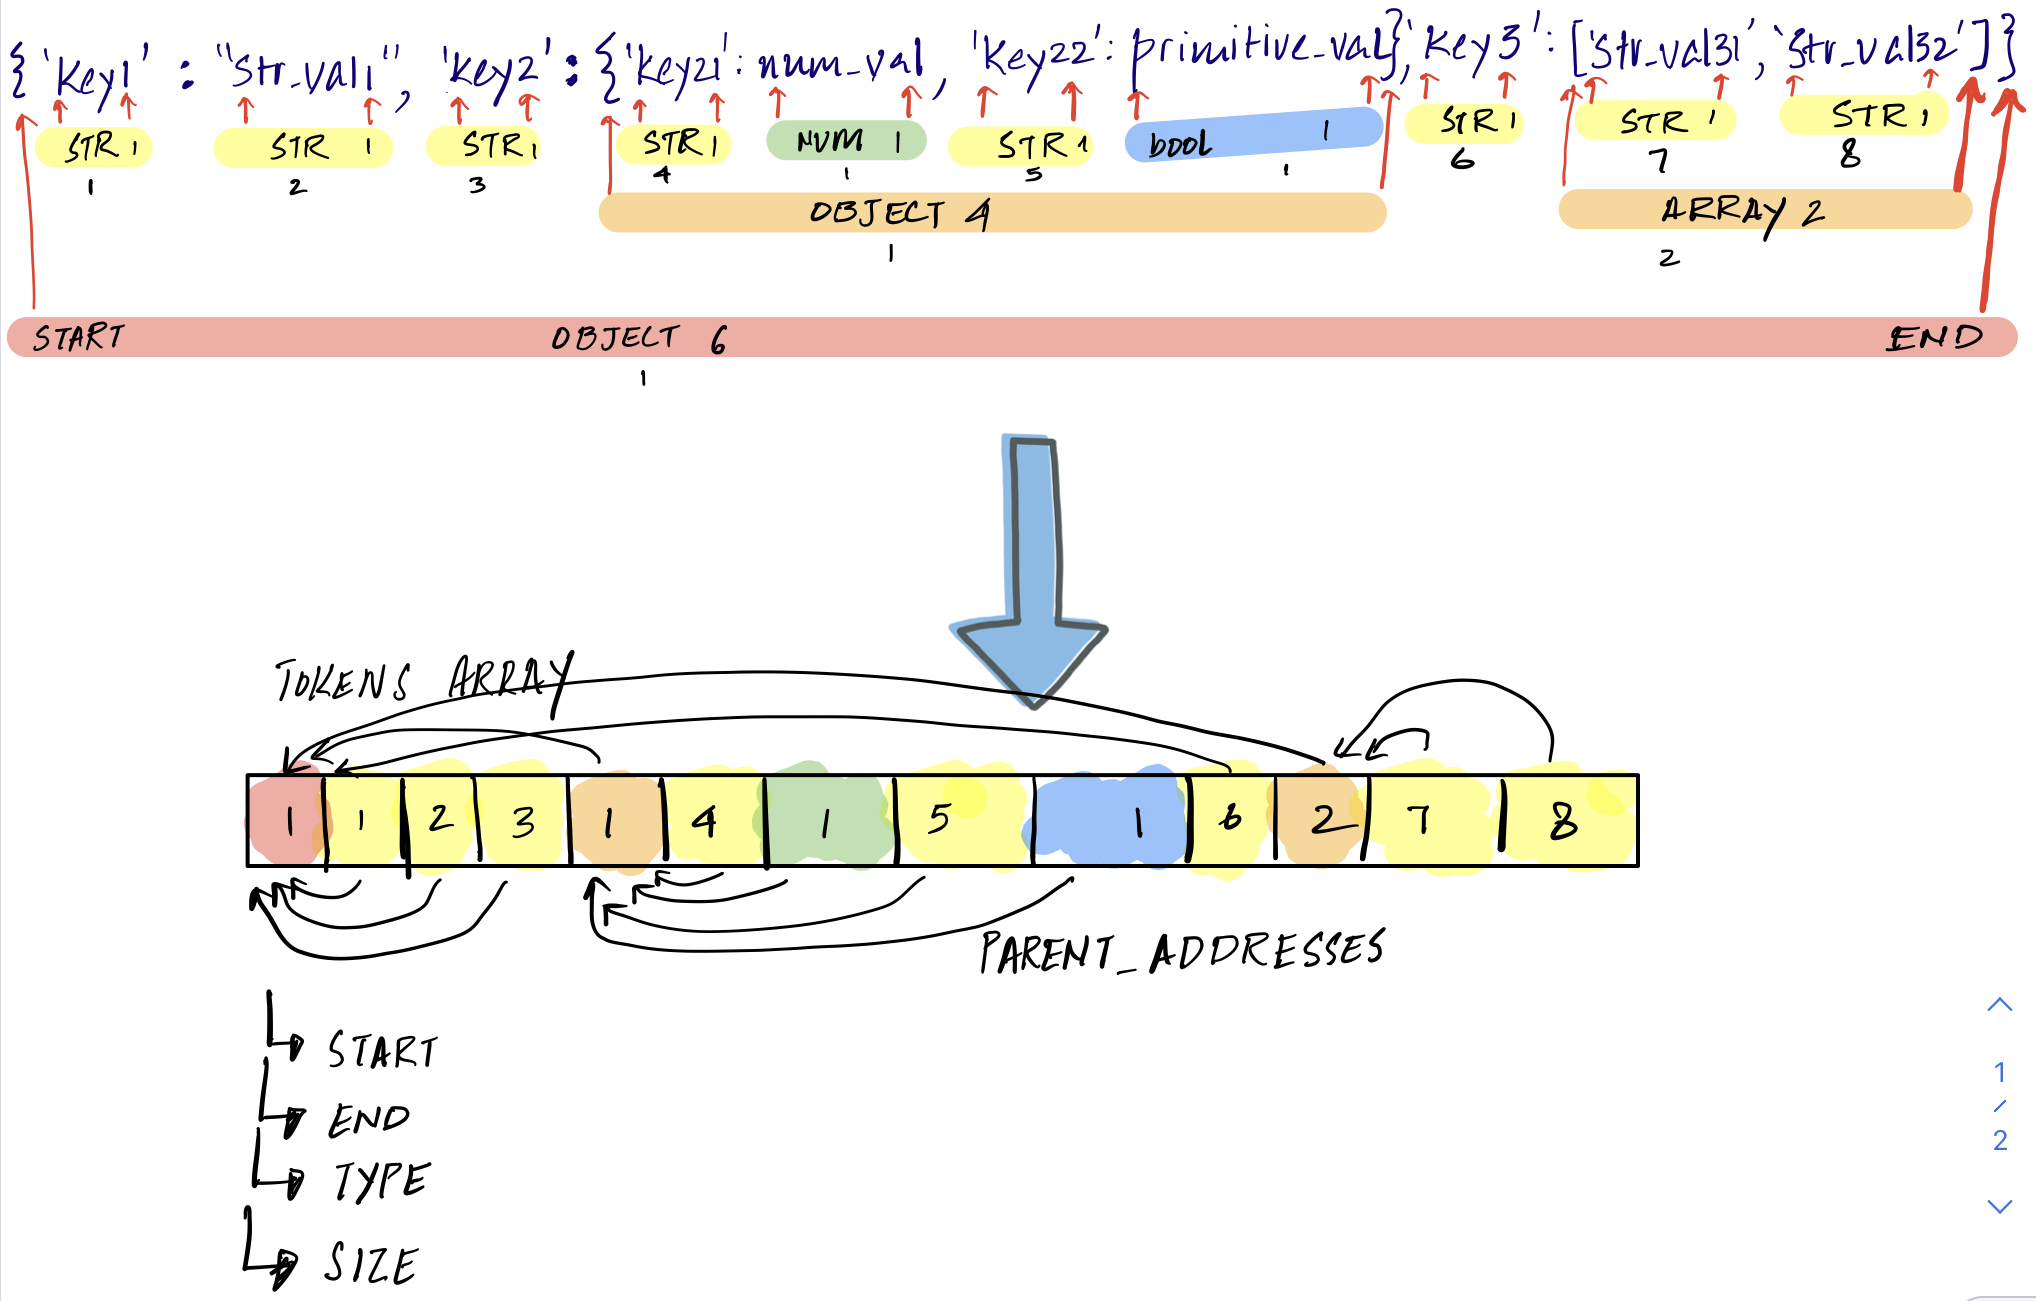 {'Key1' : "Str_val1", 'Key2' : {'Key21' : num_val, 'Key22' : primitive_val}, 'Key3' : ['Str_val31', 'Str_val32']}
STR 1 STR 1 STR 1 STR 1 NUM 1 STR 1 bool 1 STR 1 STR 1 STR 1
1 2 3 4 1 5 1 6 7 8
OBJECT 4 ARRAY 2
1 2
START OBJECT 6 END
1
TOKENS ARRAY
1 1 2 3 1 4 1 5 1 6 2 7 8
PARENT_ADDRESSES
START
END
TYPE
SIZE
1
/
2